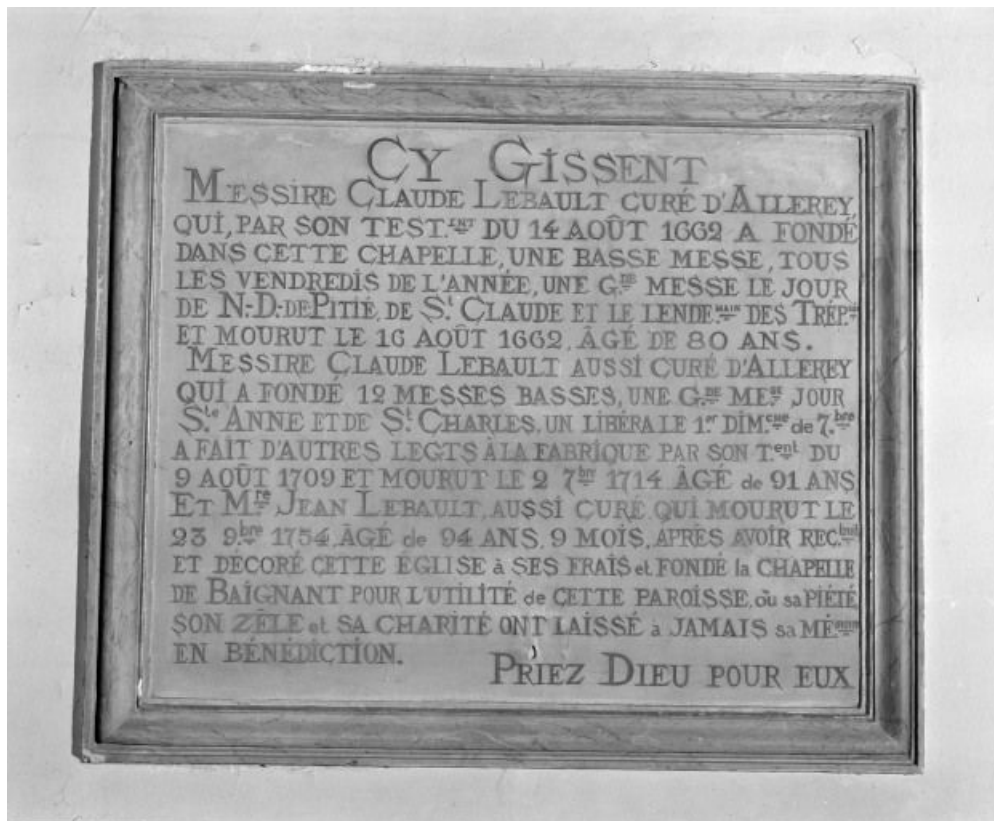 CY GISSENT
MESSIRE CLAUDE LEBAULT CURÉ D'ALLEREY,
QUI, PAR SON TEST.ENT DU 14 AOÛT 1662 A FONDÉ
DANS CETTE CHAPELLE, UNE BASSE MESSE, TOUS
LES VENDREDIS DE L'ANNÉE, UNE G.DE MESSE LE JOUR
DE N.-D.-DE PITIÉ, DE St CLAUDE ET LE LENDE.MAIN DES TRÉP.
ET MOURUT LE 16 AOÛT 1662, ÂGÉ DE 80 ANS.
MESSIRE CLAUDE LEBAULT AUSSI CURÉ D'ALLEREY
QUI A FONDÉ 12 MESSES BASSES, UNE G.DE ME.SE JOUR
Ste ANNE ET DE St CHARLES, UN LIBÉRA LE 1.er DIM.CHE de 7.bre
A FAIT D'AUTRES LEGTS À LA FABRIQUE PAR SON T.ent DU
9 AOÛT 1709 ET MOURUT LE 2 7bre 1714 ÂGÉ de 91 ANS
ET Mre JEAN LEBAULT, AUSSI CURÉ, QUI MOURUT LE
23 9.bre 1754, ÂGÉ de 94 ANS, 9 MOIS, APRÈS AVOIR REC.
ET DÉCORÉ CETTE ÉGLISE à SES FRAIS et FONDÉ la CHAPELLE
DE BAIGNANT POUR L'UTILITÉ de CETTE PAROISSE, où sa PIÉTÉ
SON ZÈLE et SA CHARITÉ ONT LAISSÉ à JAMAIS sa MÉ.
EN BÉNÉDICTION.
PRIEZ DIEU POUR EUX